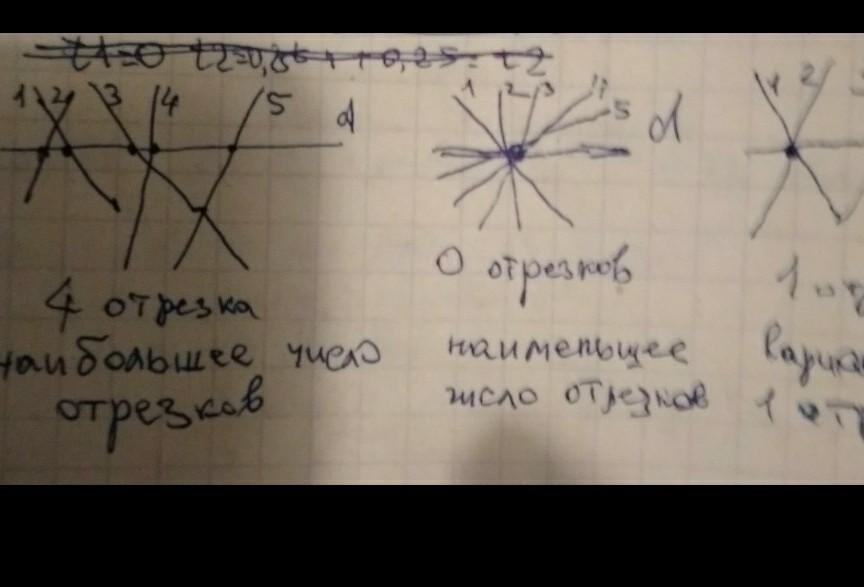 t1=0 t2=0,25t + 0,25 = t2
1 2 3 4 5 d
1 2 3 4 5 d
1 2
4 отрезка
наибольшее число
отрезков
0 отрезков
наименьшее
число отрезков
1
1